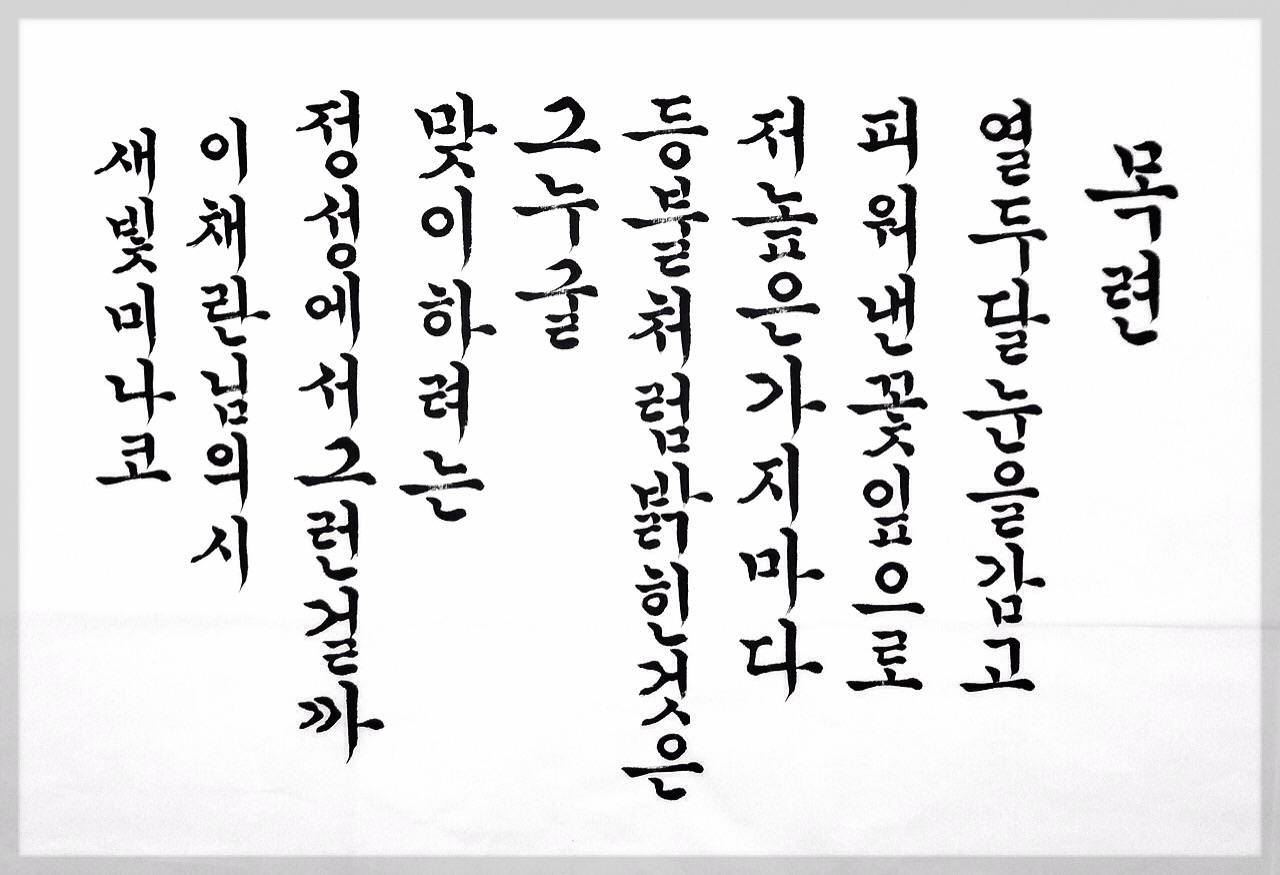 목련
열두달눈을감고
피워낸꽃잎으로
저높은가지마다
등불처럼밝힌것은
그누굴
맞이하려는
정성에서그런걸까
이채란님의시
새빛미나코